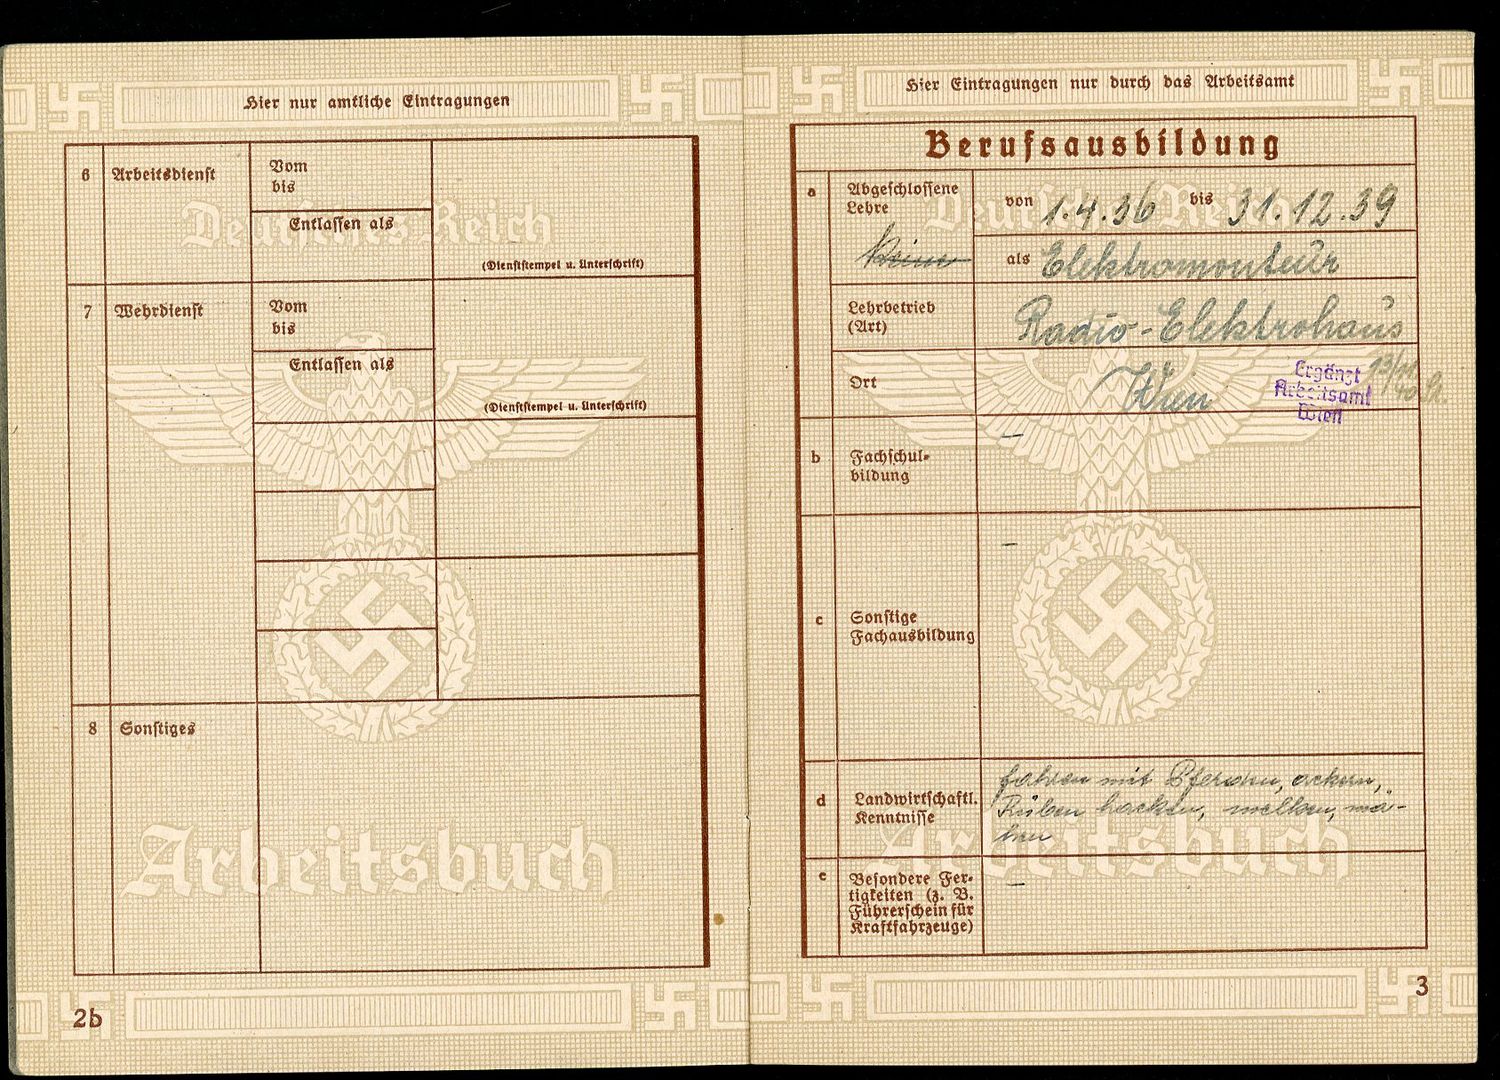 Hier nur amtliche Eintragungen
6 Arbeitsdienst
Vom
bis
Entlassen als
(Dienststempel u. Unterschrift)
7 Wehrdienst
Vom
bis
Entlassen als
(Dienststempel u. Unterschrift)
8 Sonstiges
Deutsches Reich
Arbeitsbuch
2b
Hier Eintragungen nur durch das Arbeitsamt
Berufsausbildung
a
Abgeschlossene
Lehre
Keine
von 1.4.36 bis 31.12.39
als Elektromonteur
Lehrbetrieb
(Art)
Radio-Elektrohaus
Ort
Wien
Ergänzt
Arbeitsamt
Wien
b
Fachschul-
bildung
–
c
Sonstige
Fachausbildung
–
d
Landwirtschaftl.
Kenntnisse
fahren mit Pferden, ackern,
Rüben hacken, melken, mä-
hen
e
Besondere Fer-
tigkeiten (z. B.
Führerschein für
Kraftfahrzeuge)
–
Deutsches Reich
Arbeitsbuch
3